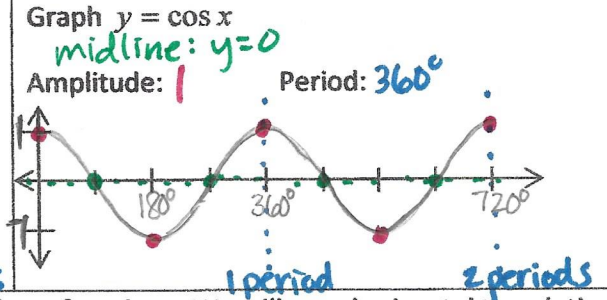 Graph y = cos x
midline: y=0
Amplitude: 1 Period: 360°
1
180° 360° 720°
-1
1 period 2 periods